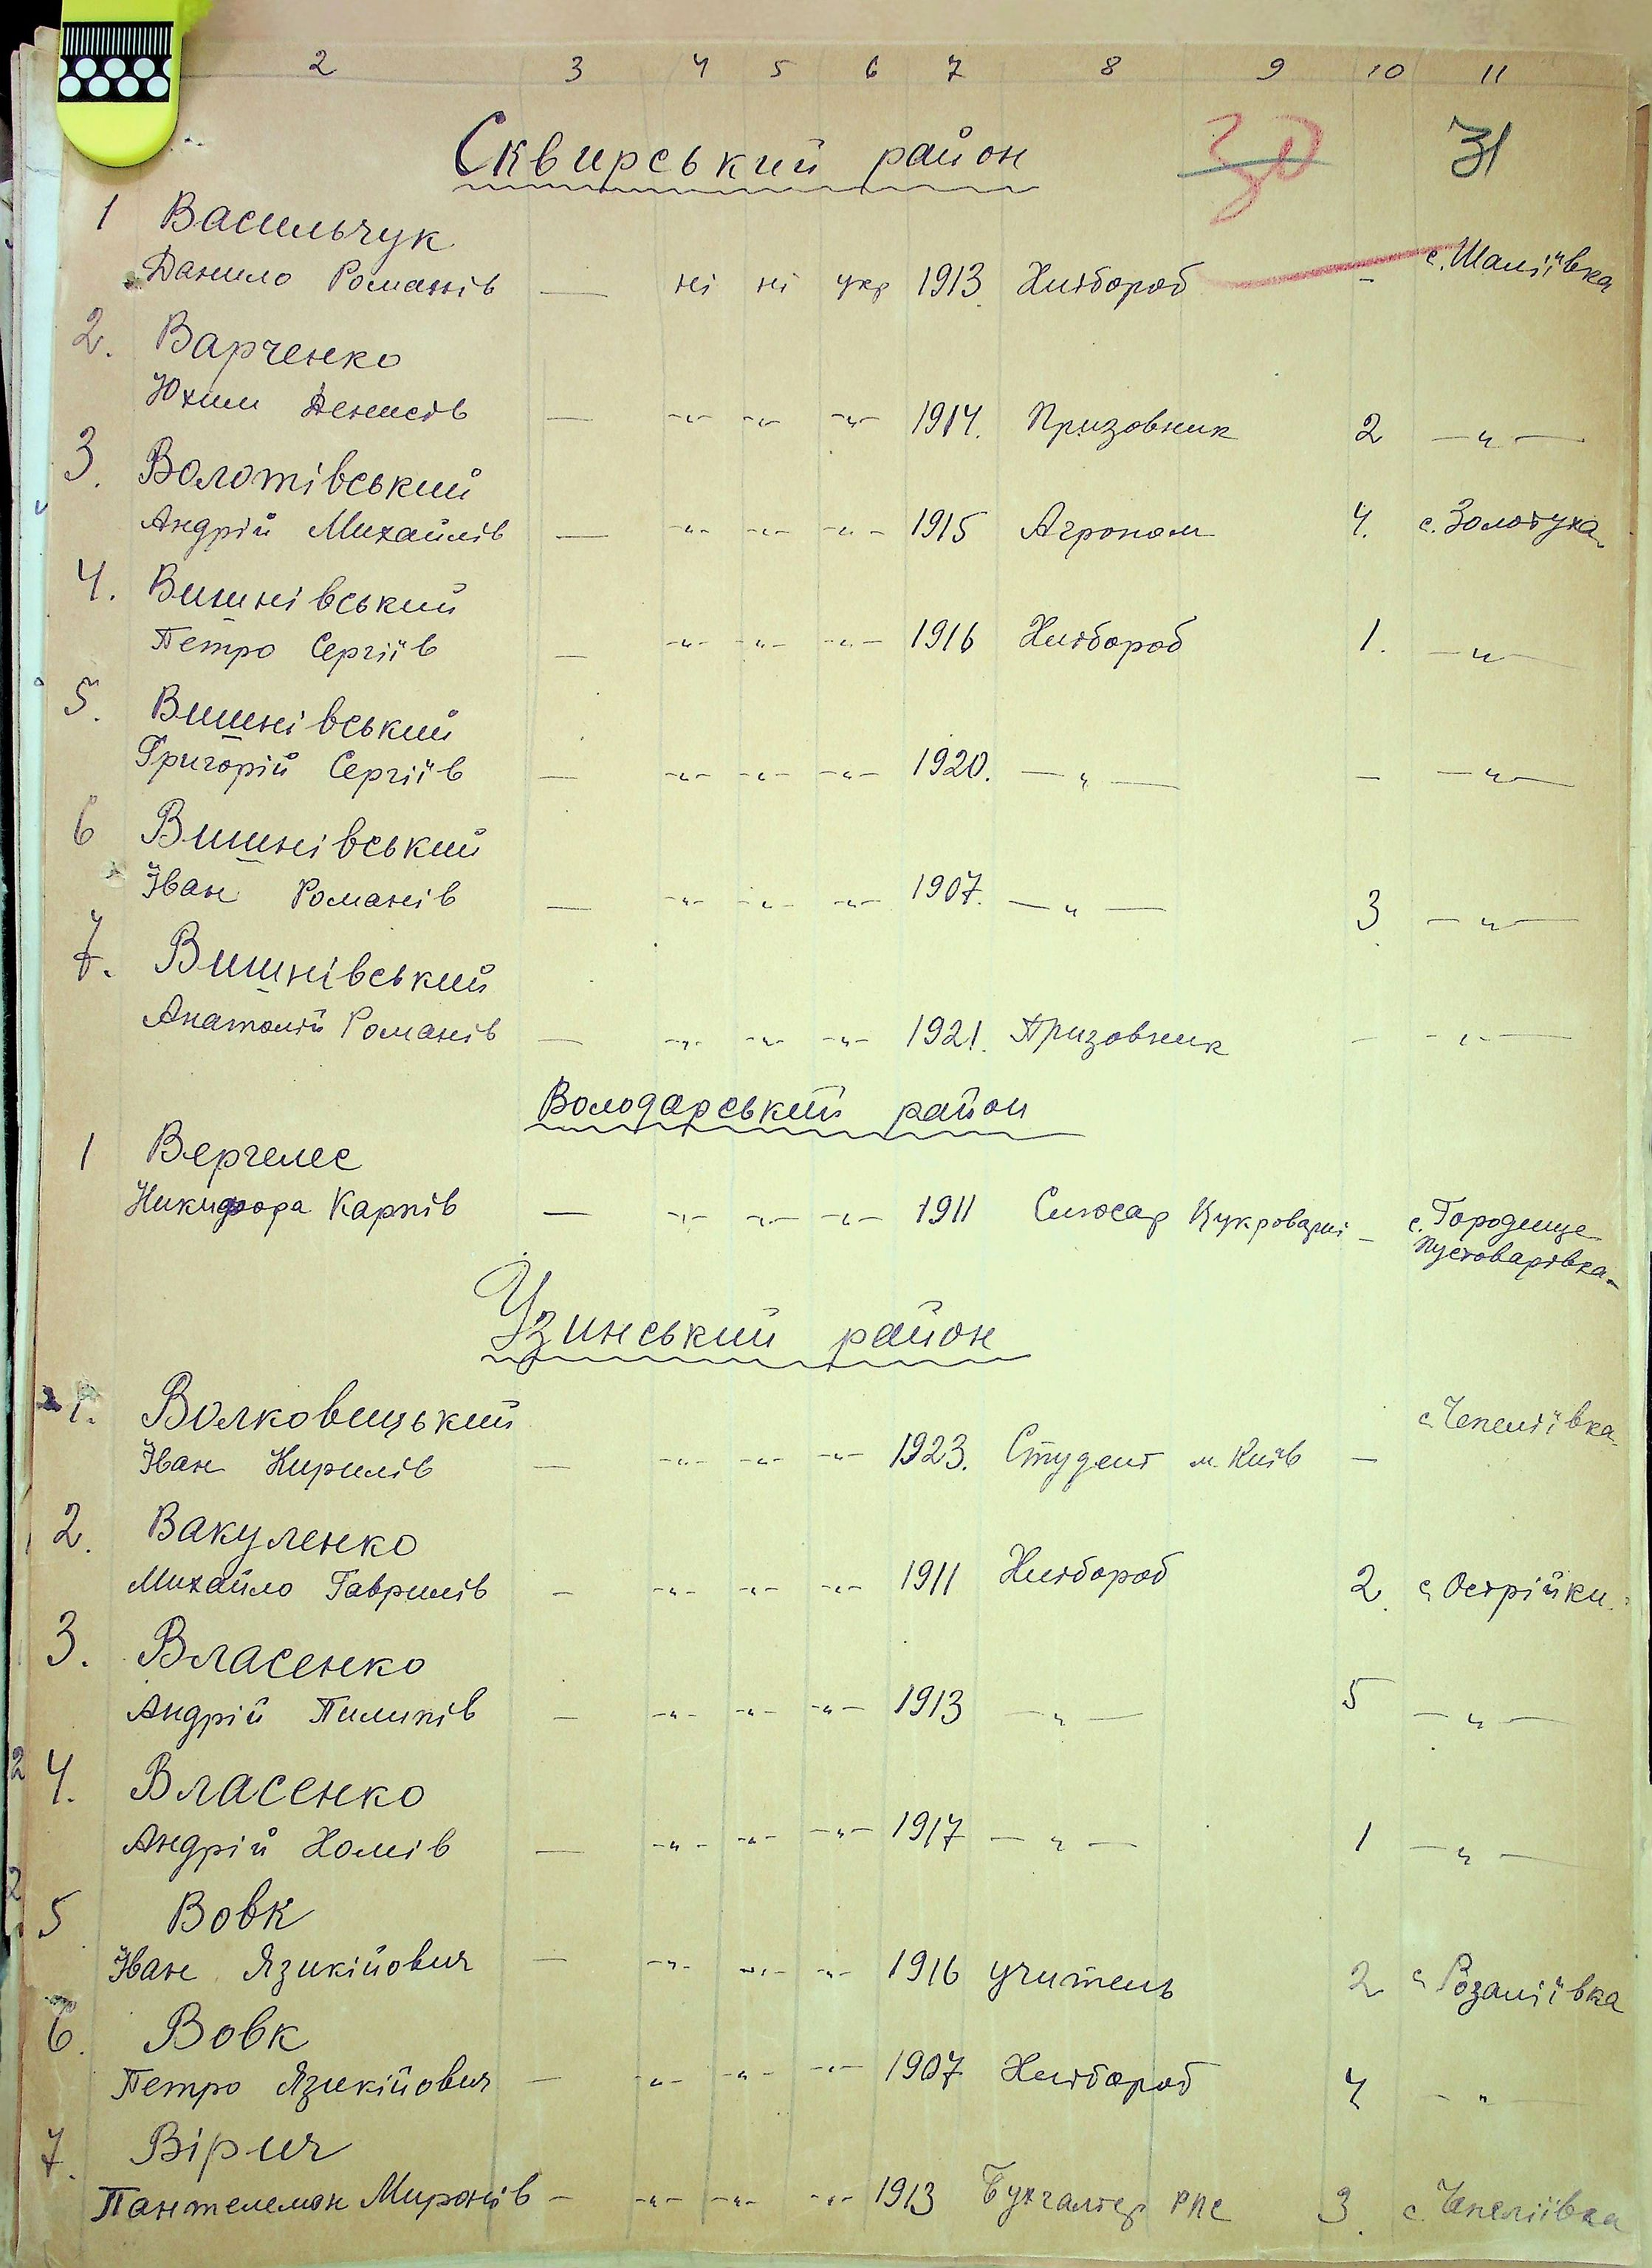 2 3 4 5 6 7 8 9 10 11
Сквирський район 30 31
1 Васильчук
Данило Романів — ні ні укр 1913 Хлібороб - с. Шаліївка
2. Варченко
Юхим Денисів — -"- -"- -"- 1914. Призовник 2 -"-
3. Волотівський
Андрій Михайлів — -"- -"- -"- 1915 Агроном 4. с. Золотуха
4. Вишнівський
Петро Сергіїв — -"- -"- -"- 1916 Хлібороб 1. -"-
5. Вишнівський
Григорій Сергіїв — -"- -"- -"- 1920. -"- — -"-
6 Вишнівський
Іван Романів — -"- -"- -"- 1907. -"- 3 -"-
7. Вишнівський
Анатолій Романів — -"- -"- -"- 1921. Призовник — -"-
Володарський район
1 Вергелес
Никифора Карпів — -"- -"- -"- 1911 Слюсар Цукроварні — с. Городище
Пустоварівка
Узинський район
1. Волковицький с. Чепеліївка
Іван Кирилів — -"- -"- -"- 1923. Студент м. Київ —
2. Вакуленко
Михайло Гаврилів — -"- -"- -"- 1911 Хлібороб 2. с. Острійки
3. Власенко
Андрій Пилипів — -"- -"- -"- 1913 -"- 5 -"-
4. Власенко
Андрій Хомів — -"- -"- -"- 1917 -"- 1 -"-
5 Вовк
Іван Язикійович — -"- -"- -"- 1916 учитель 2 с. Розаліївка
6. Вовк
Петро Язикійович — -"- -"- -"- 1907 Хлібороб 4 -"-
7. Вірич
Пантелемон Миронів — -"- -"- -"- 1913 Бухгалтер РПС 3. с. Чепеліївка